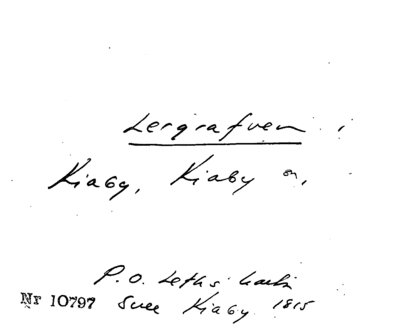 Lergrafven i
Kiaby, Kiaby sn,
P.O. Leths karta
Nr 10797 över Kiaby 1815